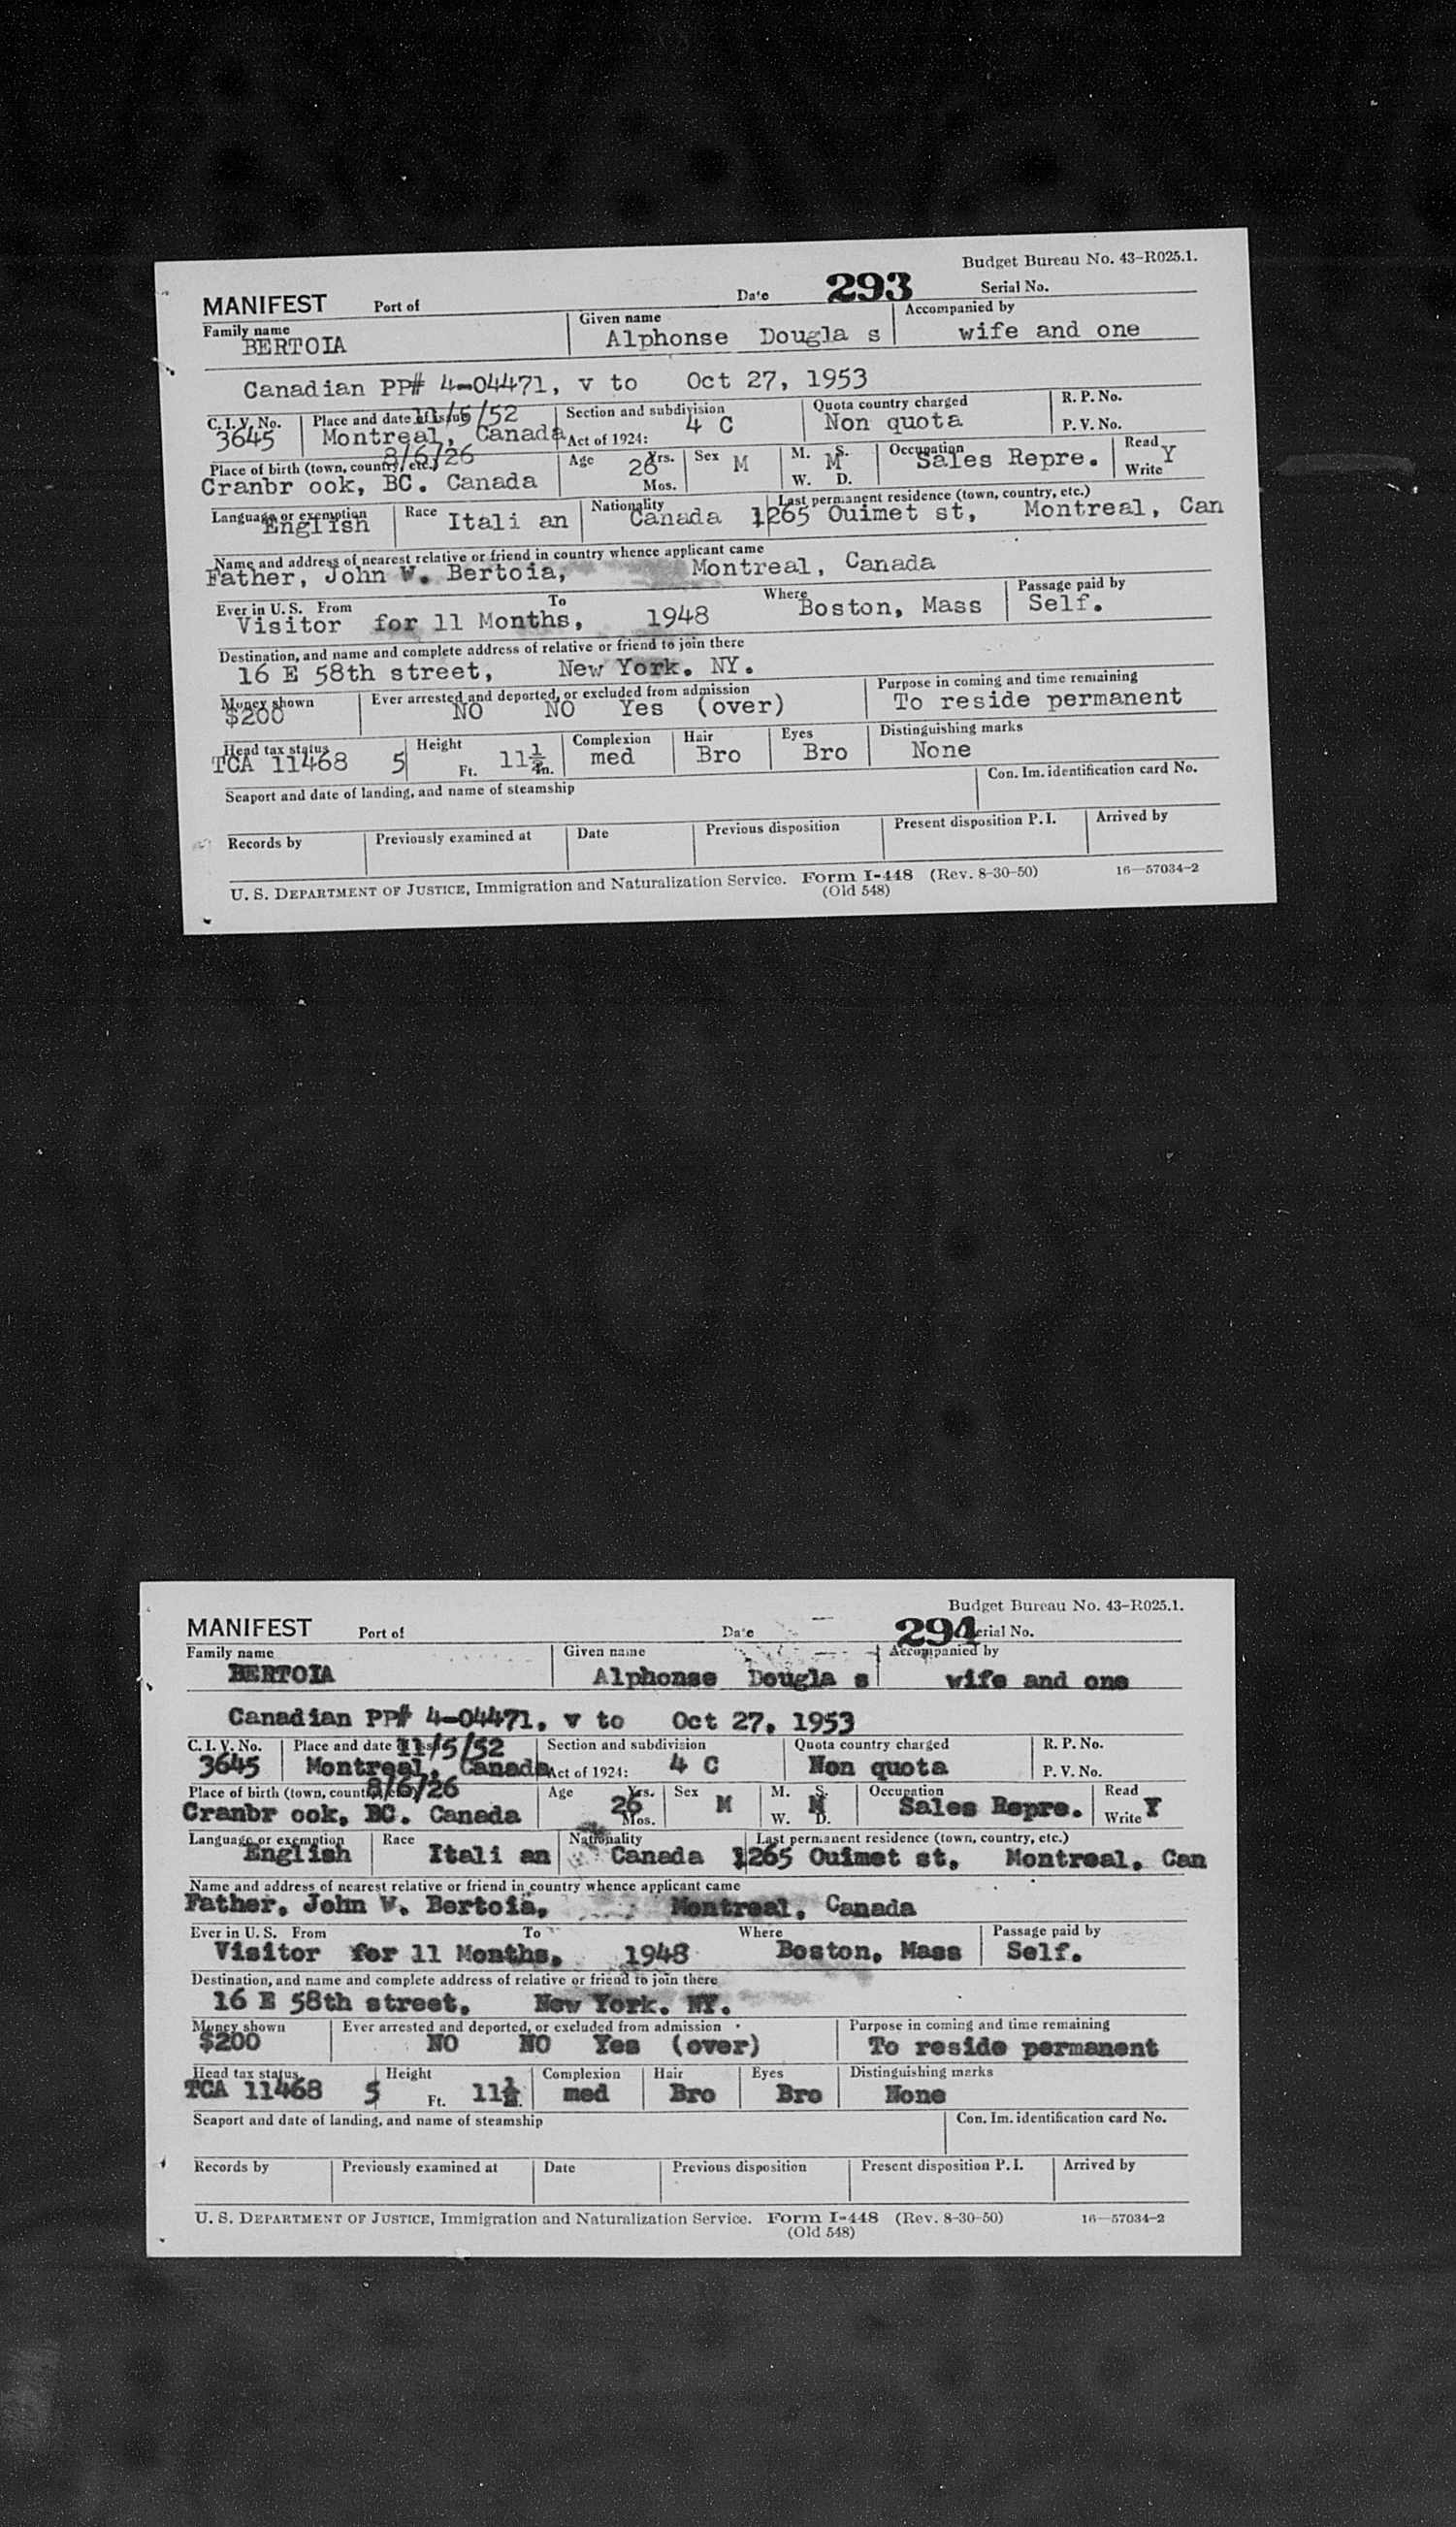 Budget Bureau No. 43-R025.1.
MANIFEST Port of Date 293 Serial No.
Family name Given name Accompanied by
BERTOIA Alphonse Dougla s wife and one
Canadian PP# 4-04471, v to Oct 27, 1953
C. I. V. No. Place and date of issue 11/5/52 Section and subdivision Quota country charged R. P. No.
3645 Montreal, Canada Act of 1924: 4 C Non quota P. V. No.
Place of birth (town, country, etc.) 8/6/26 Age 26 Yrs. Mos. Sex M M. S. W. D. M Occupation Sales Repre. Read Write Y
Cranbr ook, BC. Canada
Language or exemption Race Nationality Last permanent residence (town, country, etc.)
English Itali an Canada 1265 Ouimet st, Montreal, Can
Name and address of nearest relative or friend in country whence applicant came
Father, John W. Bertoia, Montreal, Canada
Ever in U. S. From To Where Passage paid by
Visitor for 11 Months, 1948 Boston, Mass Self.
Destination, and name and complete address of relative or friend to join there
16 E 58th street, New York. NY.
Money shown Ever arrested and deported, or excluded from admission Purpose in coming and time remaining
$200 NO NO Yes (over) To reside permanent
Head tax status Height Complexion Hair Eyes Distinguishing marks
TCA 11468 5 Ft. 11½ In. med Bro Bro None
Seaport and date of landing, and name of steamship Con. Im. identification card No.
Records by Previously examined at Date Previous disposition Present disposition P. I. Arrived by
U. S. DEPARTMENT OF JUSTICE, Immigration and Naturalization Service. Form I-448 (Rev. 8-30-50) 16—57034-2
(Old 548)
Budget Bureau No. 43-R025.1.
MANIFEST Port of Date 294 Serial No.
Family name Given name Accompanied by
BERTOIA Alphonse Dougla s wife and one
Canadian PP# 4-04471, v to Oct 27, 1953
C. I. V. No. Place and date of issue 11/5/52 Section and subdivision Quota country charged R. P. No.
3645 Montreal, Canada Act of 1924: 4 C Non quota P. V. No.
Place of birth (town, country, etc.) 8/6/26 Age 26 Yrs. Mos. Sex M M. S. W. D. M Occupation Sales Repre. Read Write Y
Cranbr ook, BC. Canada
Language or exemption Race Nationality Last permanent residence (town, country, etc.)
English Itali an Canada 1265 Ouimet st, Montreal, Can
Name and address of nearest relative or friend in country whence applicant came
Father, John W. Bertoia, Montreal, Canada
Ever in U. S. From To Where Passage paid by
Visitor for 11 Months, 1948 Boston, Mass Self.
Destination, and name and complete address of relative or friend to join there
16 E 58th street, New York. NY.
Money shown Ever arrested and deported, or excluded from admission Purpose in coming and time remaining
$200 NO NO Yes (over) To reside permanent
Head tax status Height Complexion Hair Eyes Distinguishing marks
TCA 11468 5 Ft. 11½ In. med Bro Bro None
Seaport and date of landing, and name of steamship Con. Im. identification card No.
Records by Previously examined at Date Previous disposition Present disposition P. I. Arrived by
U. S. DEPARTMENT OF JUSTICE, Immigration and Naturalization Service. Form I-448 (Rev. 8-30-50) 16—57034-2
(Old 548)